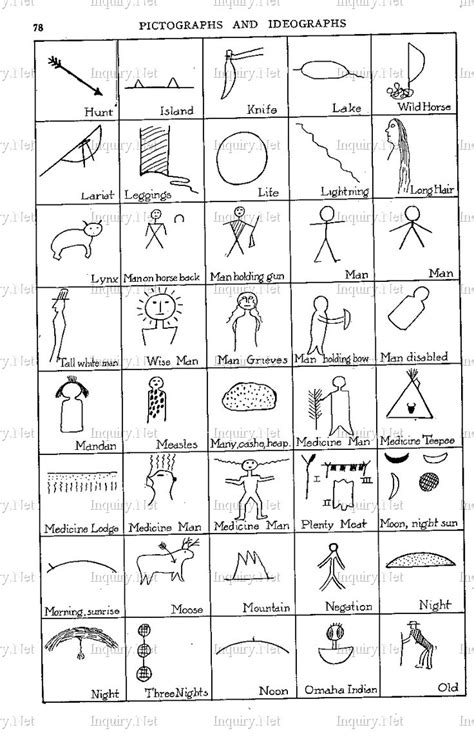 78 PICTOGRAPHS AND IDEOGRAPHS
Hunt Island Knife Lake Wild Horse
Lariat Leggings Life Lightning Long Hair
Lynx Man on horse back Man holding gun Man Man
Tall white man Wise Man Man Grieves Man holding bow Man disabled
Mandan Measles Many, cache, heap. Medicine Man Medicine Teepee
I II III
Medicine Lodge Medicine Man Medicine Man Plenty Meat Moon, night sun
Morning, sunrise Moose Mountain Negation Night
Night Three Nights Noon Omaha Indian Old
Inquiry.Net